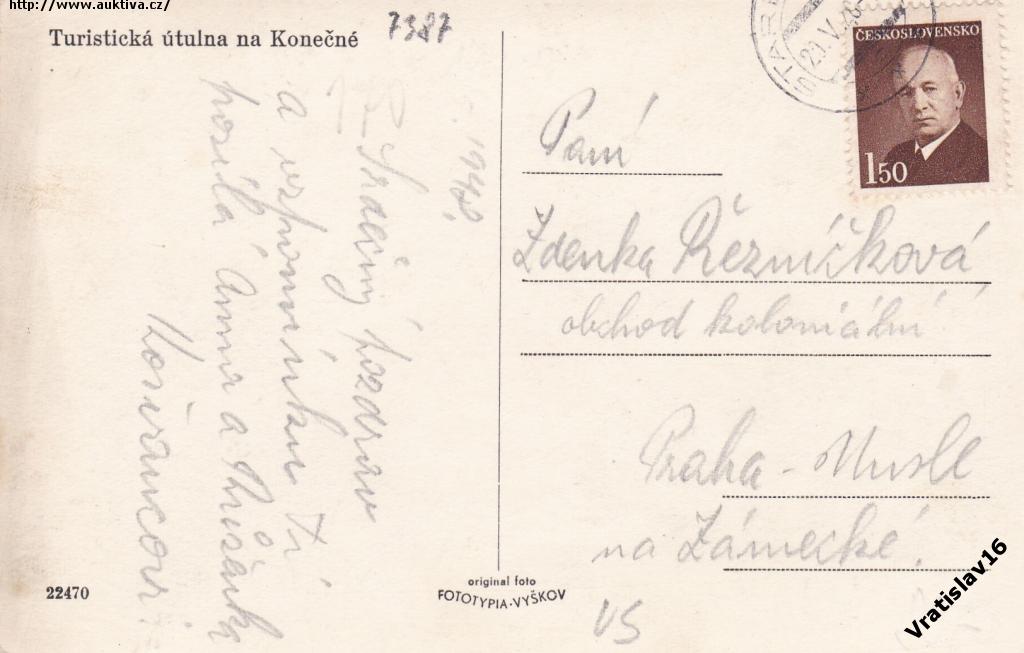 http://www.auktiva.cz/
Turistická útulna na Konečné
7387
1948.
Srdečný pozdrav
a vzpomínku Ti
posílá Anna a
ČESKOSLOVENSKO
1 50
Paní
Zdenka Řezníčková
obchod koloniální
Praha - Nusle
na Zámecké.
22470
original foto
FOTOTYPIA-VYŠKOV
VS
Vratislav16